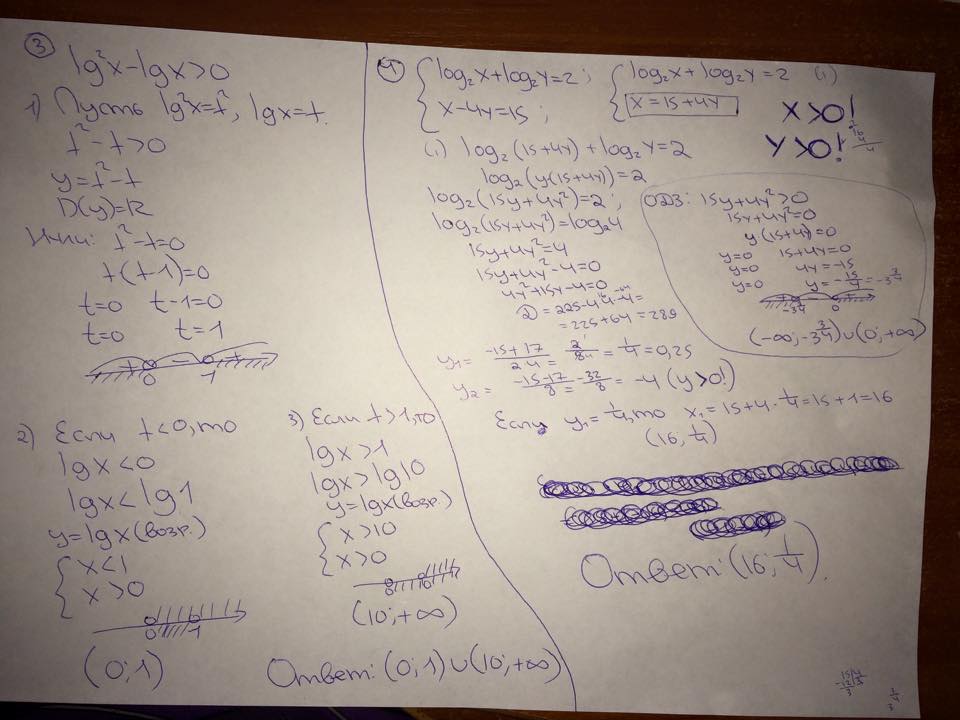 ③
lg²x-lgx>0
1) Пусть lg²x=t², lgx=t.
t²-t>0
y=t²-t
D(y)=R
Нули: t²-t=0
t(t-1)=0
t=0 t-1=0
t=0 t=1
+ - +
0 1
2) Если t<0, то
lgx<0
lgx<lg1
y=lgx(возр.)
{ x<1
x>0
0 1
(0;1)
3) Если t>1, то
lgx>1
lgx>lg10
y=lgx(возр.)
{ x>10
x>0
0 10
(10;+∞)
Ответ: (0;1)∪(10;+∞)
④ { log₂x+log₂y=2; { log₂x+log₂y=2 (1)
x-4y=15; x=15+4y
x>0!
y>0!
(1) log₂(15+4y)+log₂y=2
log₂(y(15+4y))=2
log₂(15y+4y²)=2;
log₂(15y+4y²)=log₂4
15y+4y²=4
15y+4y²-4=0
4y²+15y-4=0
D=225-4·4·(-4)=
=225+64=289
ОДЗ: 15y+4y²>0
15y+4y²=0
y(15+4y)=0
y=0 15+4y=0
y=0 4y=-15
y=0 y=-15/4=-3 3/4
+ - +
-3 3/4 0
(-∞;-3 3/4)∪(0;+∞)
y₁= -15+17/2·4 = 2/8 = 1/4 = 0,25
y₂= -15-17/8 = -32/8 = -4 (y>0!)
Если y₁=1/4, то x₁=15+4·1/4=15+1=16
(16; 1/4)
Ответ: (16; 1/4).